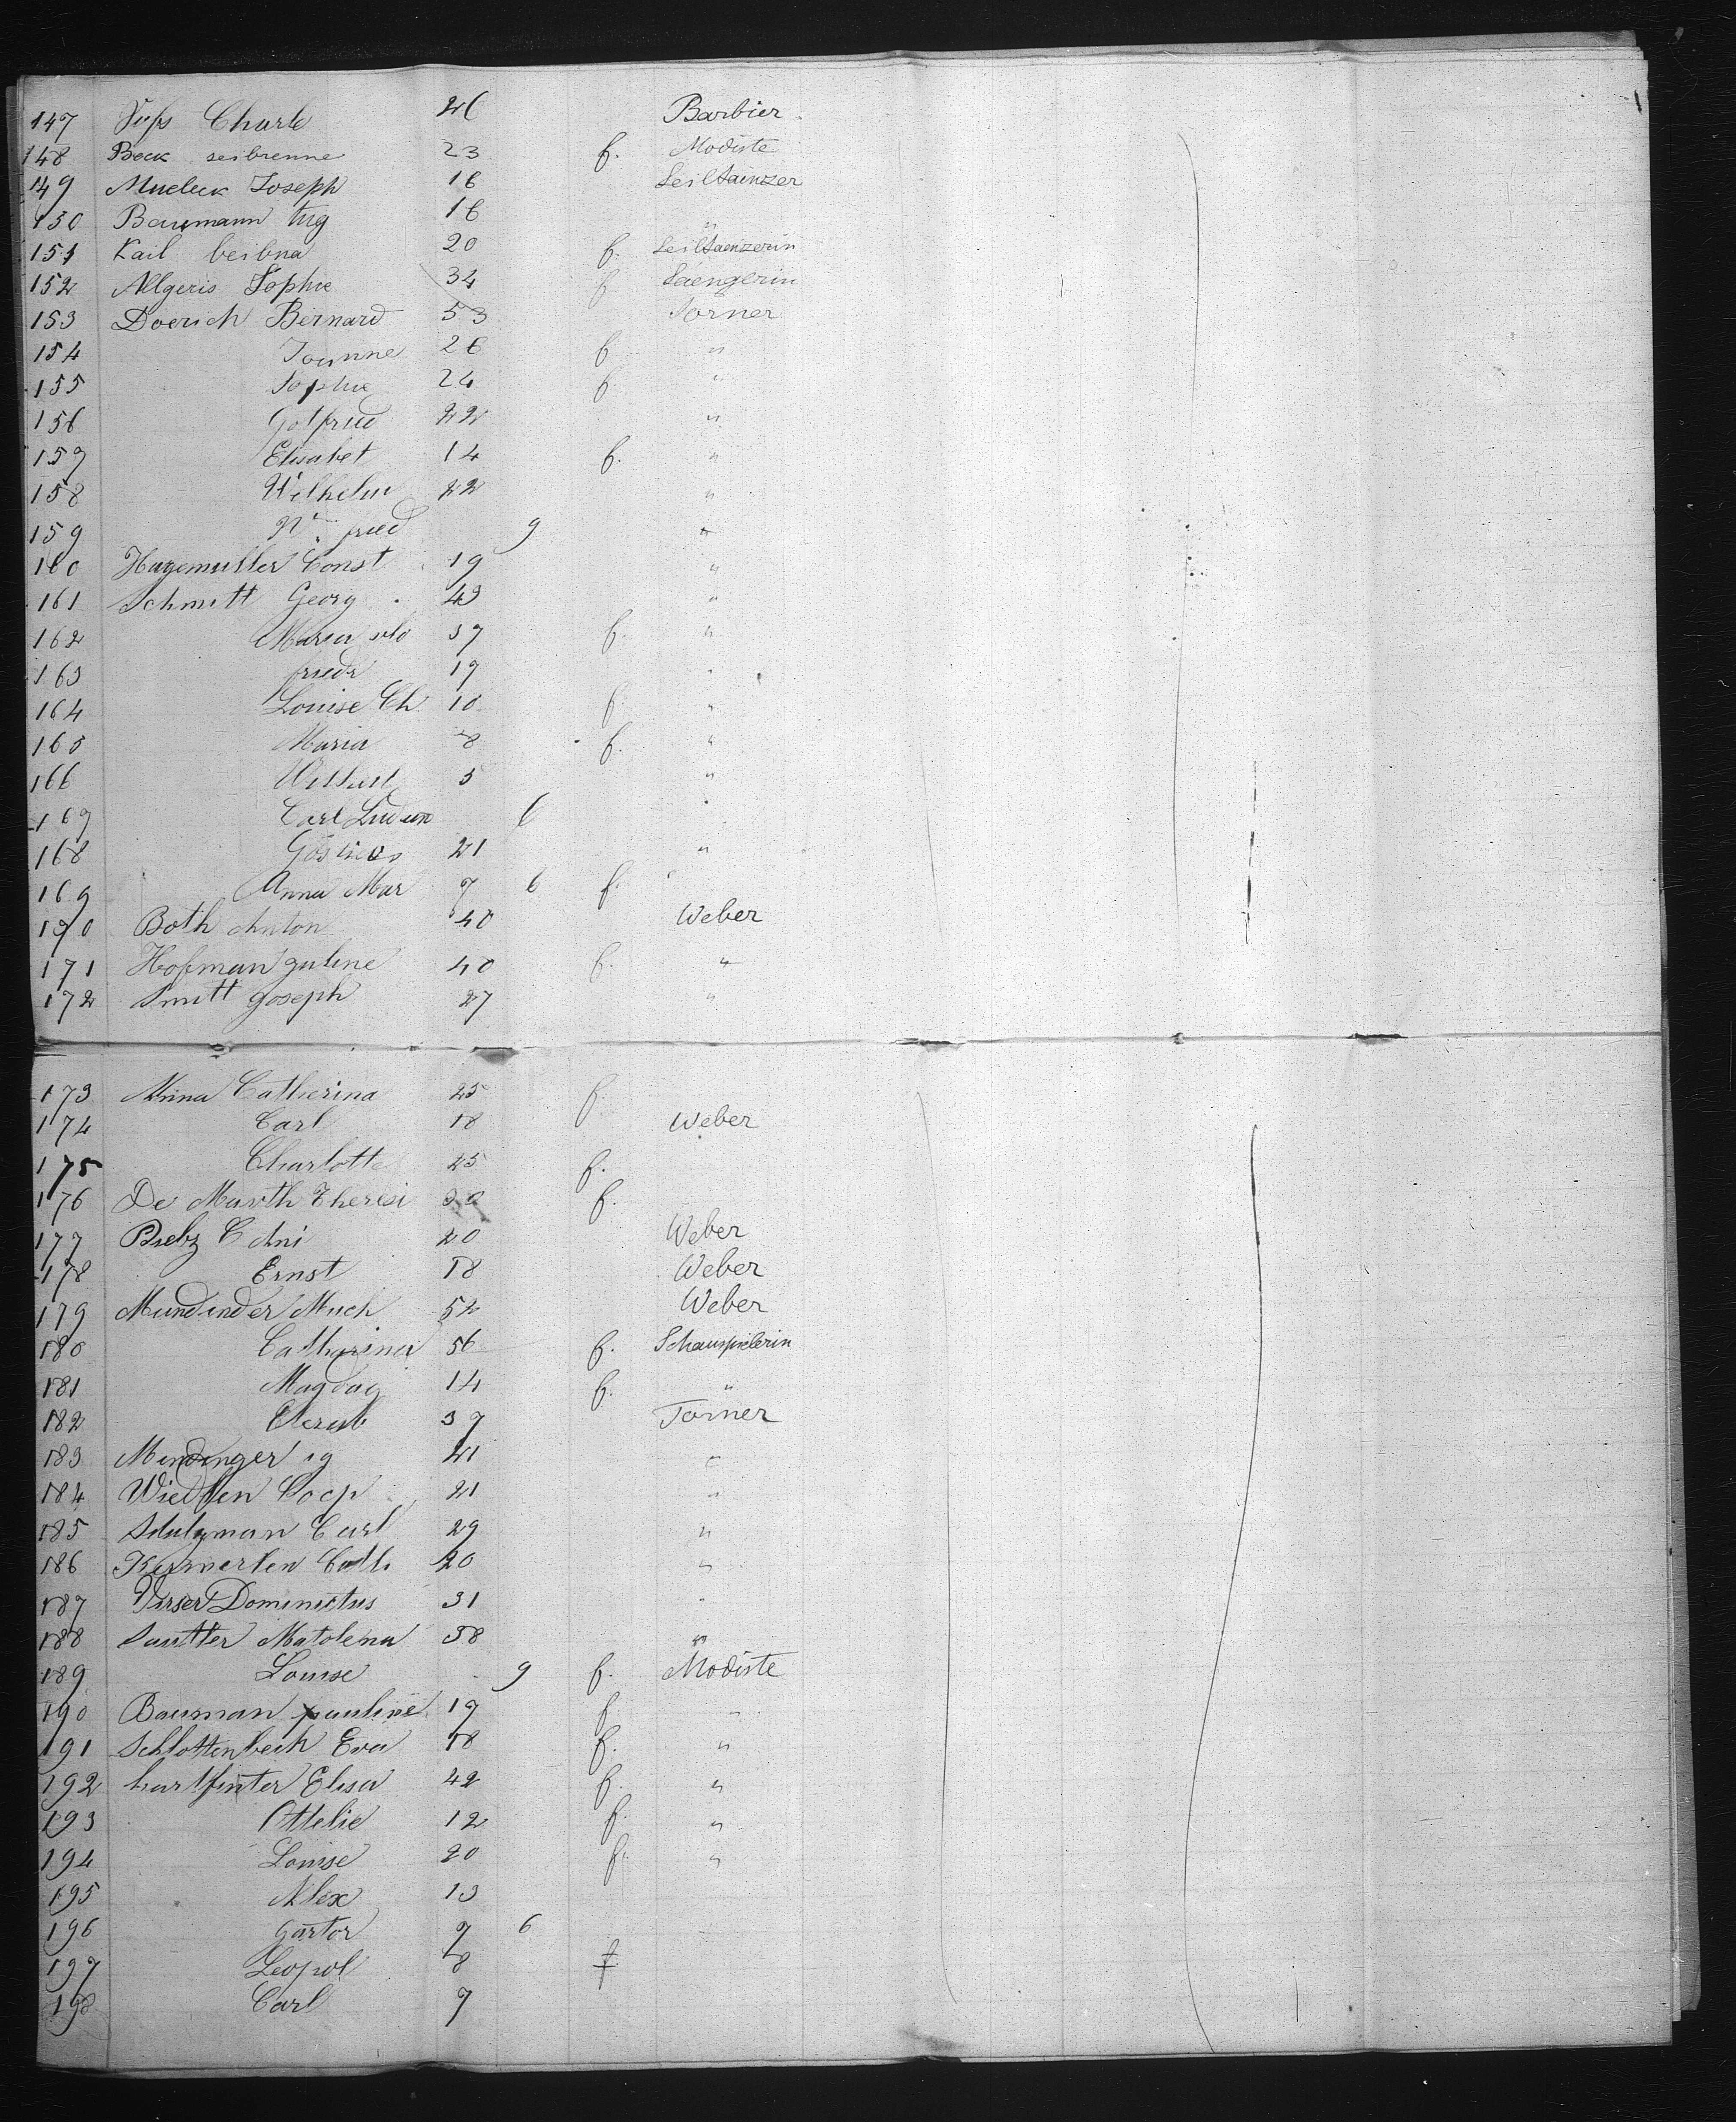 147 Charle 26 Barbier
148 Bock seibrenne 23 f. Modiste
149 Mueleck Joseph 16 Seiltainzer
150 Baumann Aug 16 "
151 Kail beibna 20 f. Seiltaenzerin
152 Allgeris Sophie 34 f Saengerin
153 Doerich Bernard 53 Törner
154 Joanne 26 f "
155 Sophie 24 f. "
156 Gotfried 22 "
157 Elisabet 14 f. "
158 Wilhelm 22 "
159 fried 9 "
160 Hagemuller Const 19 "
161 Schmitt Georg 43 "
162 Maria 37 f. "
163 friedr 17 "
164 Louise Ch. 10 f "
165 Maria 8 f. "
166 5 "
167 Carl 6 "
168 21 "
169 Anna Mar 7 6 f. "
170 Both Anton 40 Weber
171 Hofman guline 40 f. "
172 Smitt Joseph 27 "
173 Anna Catherina 25 f.
174 Carl 18 Weber
175 Charlotte 25 f.
176 De Marth Theresi 30 f.
177 20 Weber
178 Ernst 18 Weber
179 Mundinder Mich 52 Weber
180 Catharina 56 f. Schauspielerin
181 Magdag 14 f. "
182 37 Törner
183 Mendinger ig 21 "
184 21 "
185 Carl 29 "
186 Kermerlen Cath 20 "
187 Dominictus 31 "
188 Sautter Matolena 38 "
189 Louise 9 f. Modiste
190 Bauman pauline 19 f. "
191 Schlottenbeck Eva 18 f. "
192 Elisa 42 f. "
193 Ottelie 12 f. "
194 Louise 20 f. "
195 Alex 13
196 gartor 7 6
197 Leopol 8 f
198 Carl 7